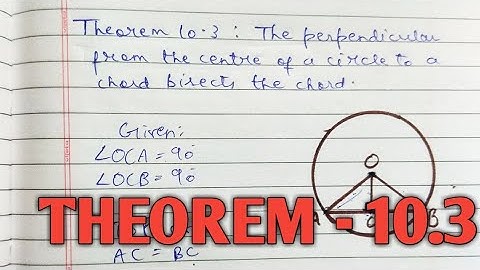 Theorem 10.3 : The perpendicular
from the centre of a circle to a
chord bisects the chord.
Given:
∠OCA = 90°
∠OCB = 90°
O
THEOREM - 10.3
AC = BC